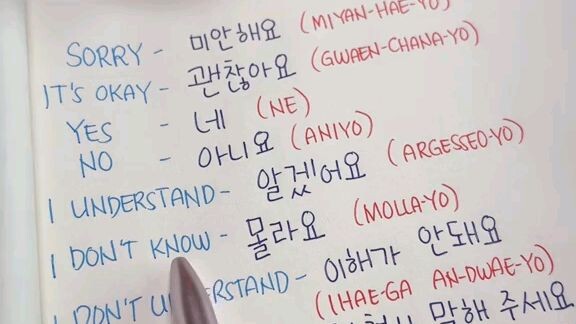 SORRY - 미안해요 (MIYAN-HAE-YO)
IT'S OKAY - 괜찮아요 (GWAEN-CHANA-YO)
YES - 네 (NE)
NO - 아니요 (ANIYO)
I UNDERSTAND - 알겠어요 (ARGESSEO-YO)
I DON'T KNOW - 몰라요 (MOLLA-YO)
I DON'T UNDERSTAND - 이해가 안돼요
(IHAE-GA AN-DWAE-YO)
말해 주세요